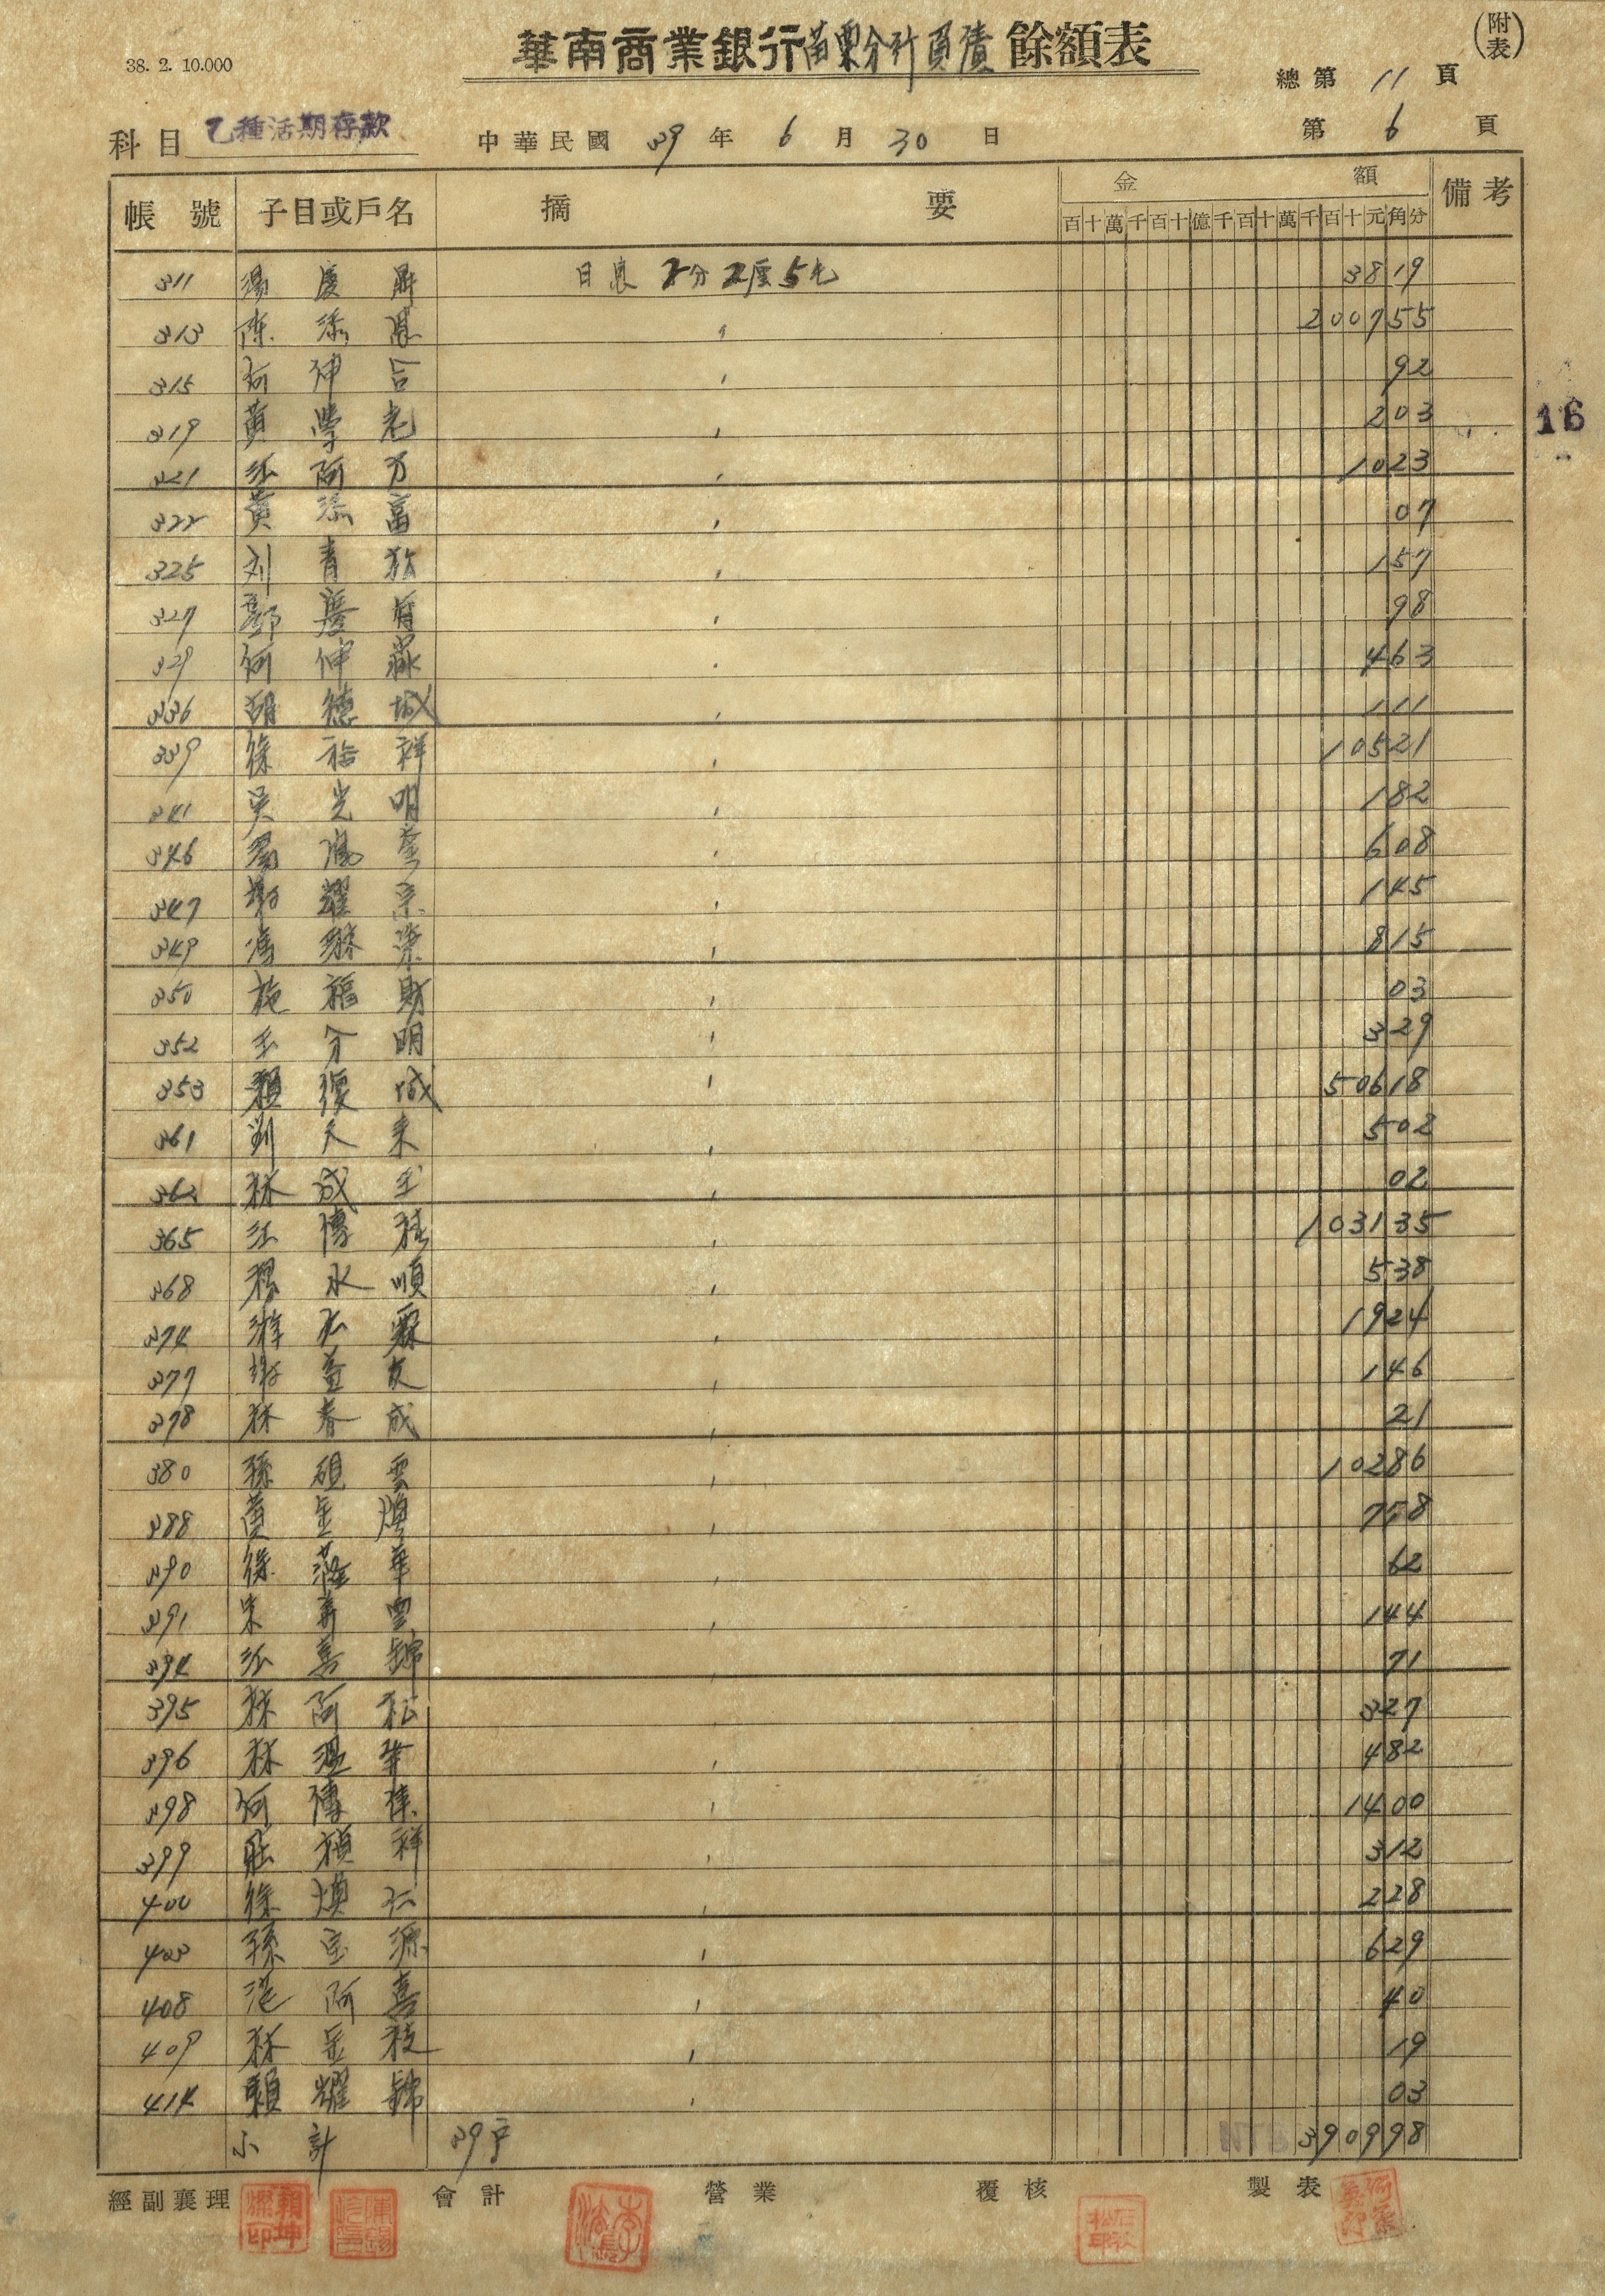 38. 2. 10.000
華南商業銀行苗栗分行負債餘額表
(附表)
總第 11 頁
科目 乙種活期存款
中華民國 39 年 6 月 30 日
第 6 頁
帳號 子目或戶名 摘要 金額 備考
百十萬千百十億千百十萬千百十元角分
311 湯慶鼎 日息 2分2厘5毛 3819
313 陳添 200755
315 何坤 92
319 黃學老 203
321 江阿万 1023
322 黃添富 07
325 刘青松 157
327 鄧 98
329 何仲 463
336 胡德城 111
339 徐裕祥 10521
341 吳光明 182
346 鳳 608
347 謝耀宗 145
349 馮 815
350 施福財 03
352 王分明 329
353 賴復城 50618
361 劉天来 502
362 林成玉 02
365 江傳 103135
368 水順 538
374 霖 1924
377 謝益友 146
378 林春成 21
380 孫硯雲 10286
388 黃金煥 758
390 徐 華 62
391 朱壽 144
394 江喜錦 71
395 林阿松 327
396 林 482
398 何傳 1400
399 莊禎祥 312
400 徐煥仁 228
403 孫宝源 629
408 阿喜 40
409 林金枝 19
414 賴耀錦 03
小計 39戶 NT$ 390998
16
經副襄理 會計 營業 覆核 製表